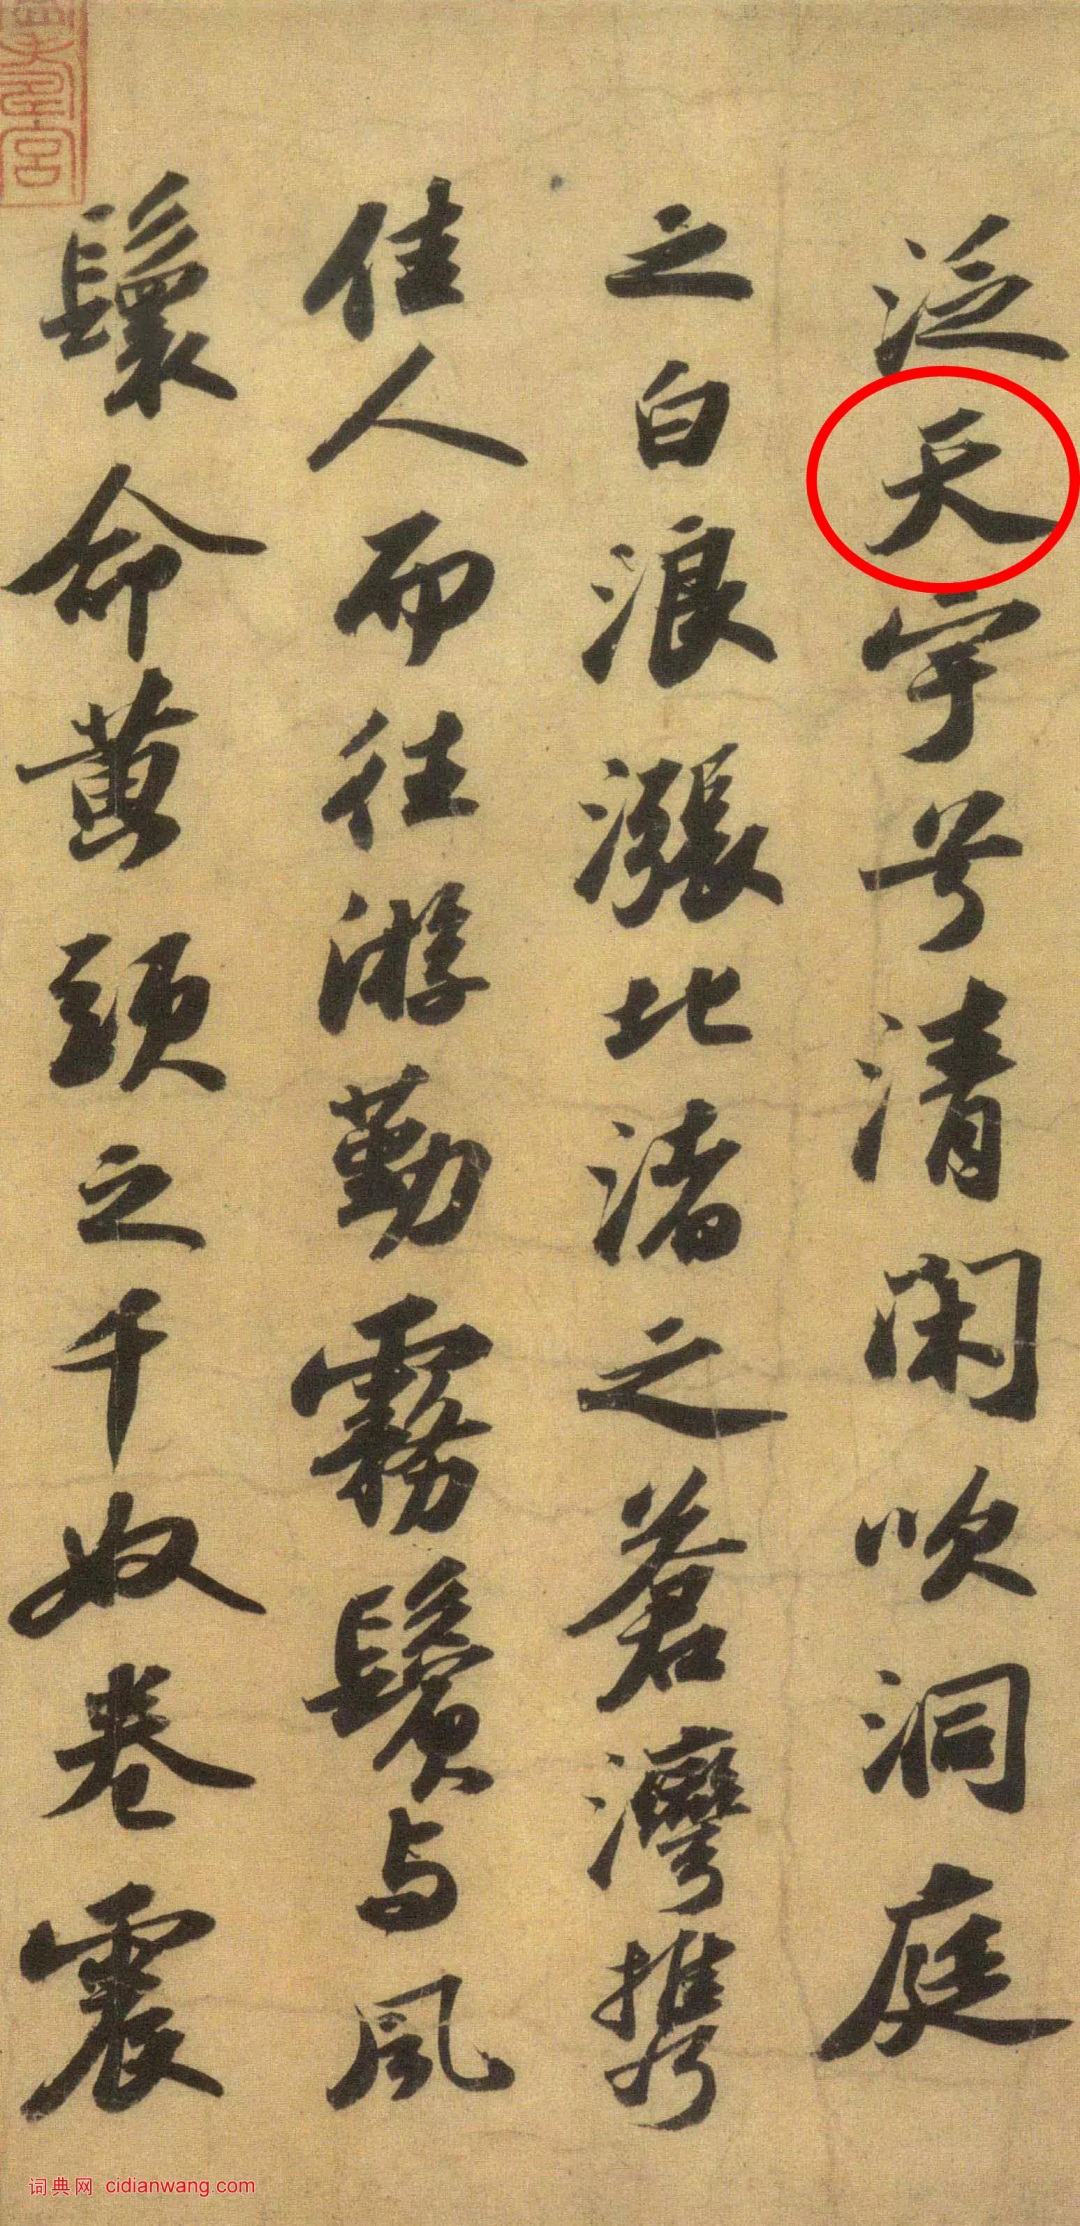 泛天宇兮清閑吹洞庭
之白浪漲北渚之蒼灣攜
佳人而往游勤霧鬢与風
鬟命黄頭之千奴卷震
词典网 cidianwang.com